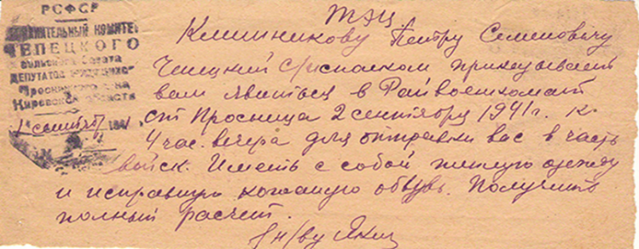 РСФСР
ИСПОЛНИТЕЛЬНЫЙ КОМИТЕТ
ЧЕПЕЦКОГО
сельского Совета
ДЕПУТАТОВ
Просницкого р-на
Кировской области
1 сентяб 1941
ТЭЦ
Клишникову Петру Семеновичу
Чепецкий с/исполком приказывает
вам явиться в Райвоенкомат
ст Просница 2 сентября 1941 г. к
4 час. вечера для отправки вас в часть
войск. Иметь с собой теплую одежду
и исправную кожаную обувь. Получить
полный расчет.